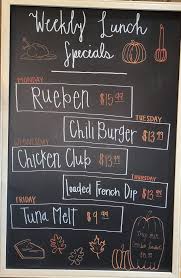 Weekly Lunch
Specials
MONDAY
Rueben $15.99
TUESDAY
Chili Burger $13.99
WEDNESDAY
Chicken Club $13.99
THURSDAY
Loaded French Dip $13.99
FRIDAY
Tuna Melt $9.99